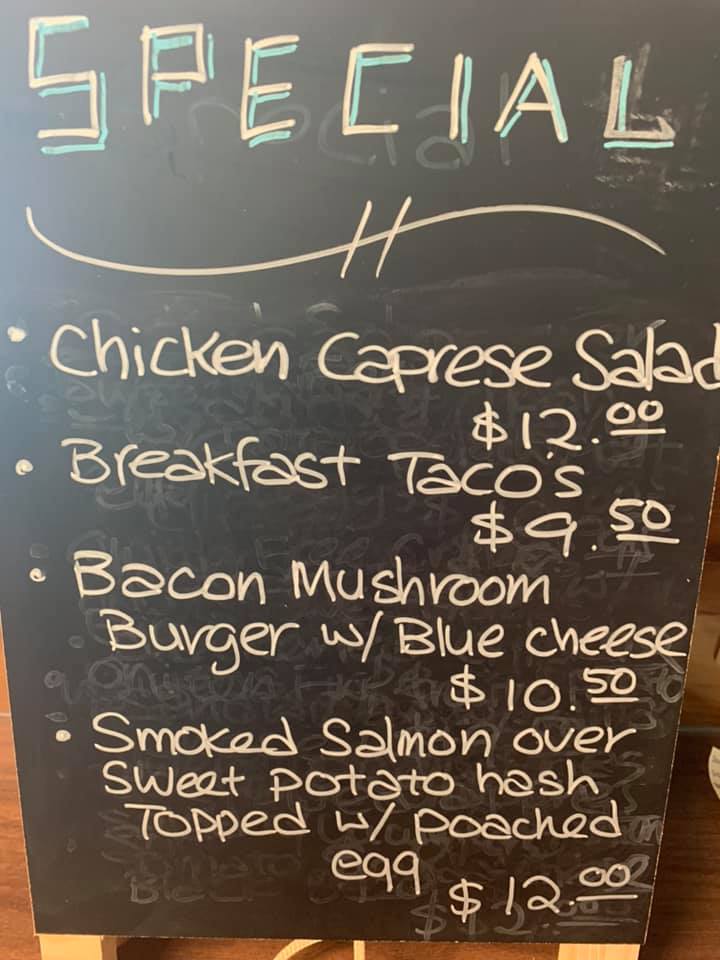 SPECIAL
• Chicken Caprese Salad
$12.00
• Breakfast Taco's
$9.50
• Bacon Mushroom
Burger w/ Blue cheese
$10.50
• Smoked Salmon over
sweet potato hash
Topped w/ poached
egg
$12.00